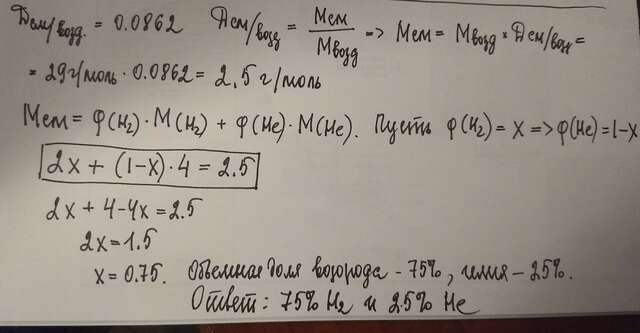 Dсм/возд. = 0.0862   Dсм/возд = Mсм/Mвозд => Mсм = Mвозд · Dсм/возд =
= 29 г/моль · 0.0862 = 2,5 г/моль
Mсм = φ(H₂) · M(H₂) + φ(He) · M(He). Пусть φ(H₂) = X => φ(He) = 1-X
2X + (1-X) · 4 = 2.5
2X + 4 - 4X = 2.5
2X = 1.5
X = 0.75. Объемная доля водорода - 75%, гелия - 25%.
Ответ: 75% H₂ и 25% He